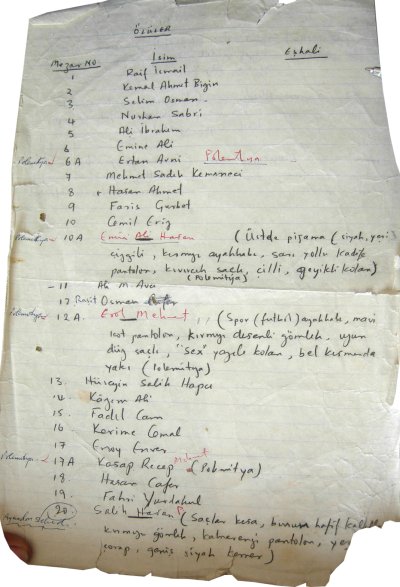 ÖLÜLER
Mezar No İsim Eşkali
1 Raif İsmail
2 Kemal Ahmet Bizin
3 Selim Osman
4 Nurhan Sabri
5 Ali İbrahim
6 Emine Ali
6 A Ertan Avni
7 Mehmet Sadık Kemaneci
8 Hasan Ahmet
9 Faris Gurbet
10 Cemil Eriz
10 A Emin Ali Hasan (Üstde pijama (siyah,
çizgili, kırmızı ayakkabı, sarı yollu kadife
pantolon, kıvırcık saçlı, çilli, geyikli kolan)
(Polemitya)
11 Ali M. Avcı
12 Raşit Osman
12 A. Erol Mehmet (Spor (futbol) ayakkabı, mavi
pantolon, kırmızı desenli gömlek, uzun
düz saçlı, "sex" yazılı kolan, bel kısmında
(Polemitya)
13. Hüseyin Salih
14 Kâzım Ali
15. Fadıl Cam
16 Kerime Cemal
17 Ersoy Enver
17 A Kasap Recep (Polemitya)
18 Hasan Cafer
19. Fahri Yurdakul
20. Salih Hasan (Saçları kısa, burnu hafif
kırmızı gömlek, kahverengi pantolon,
çorap, geniş siyah kemer)